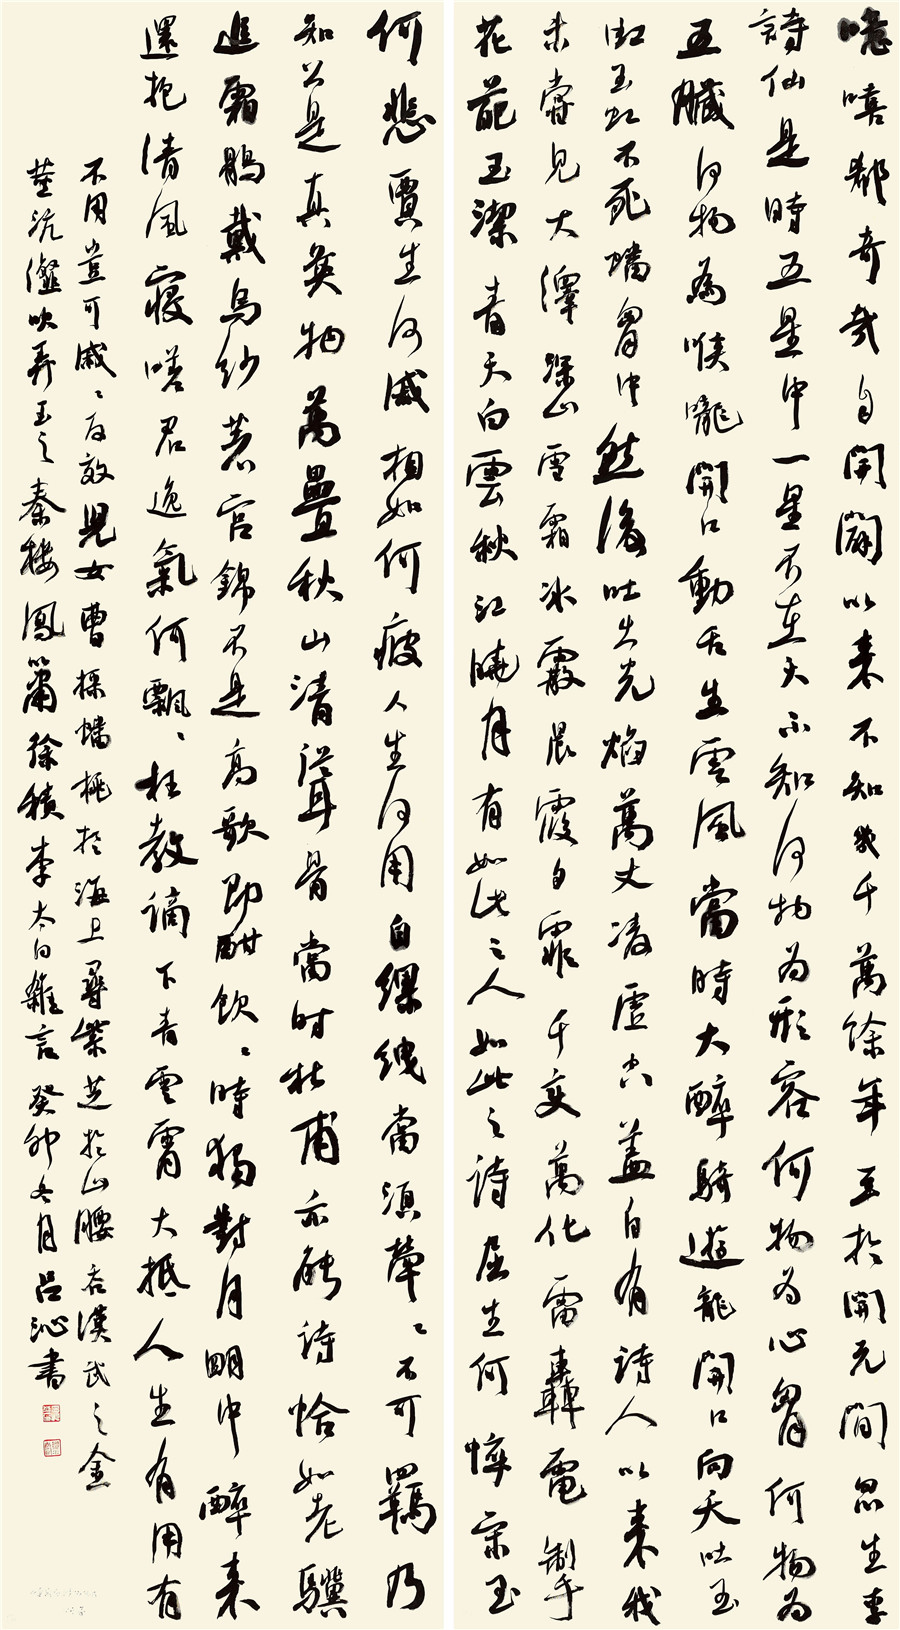 噫嘻歔奇哉自開闢以來不知幾千萬餘年至於開元間忽生李
詩仙是時五星中一星不在天不知何物為形容何物為心胸何物為
五臟何物為喉嚨開口動舌生雲風當時大醉騎遊龍開口向天吐玉
虹玉虹不死蟠胸中然後吐出光焰萬丈凌虛空蓋自有詩人以來我
未嘗見大澤深山雪霜冰霰晨霞夕霏千變萬化雷轟電掣
花葩玉潔青天白雲秋江曉月有如此之人如此之詩屈生何悴宋玉
何悲賈生何戚相如何疲人生何用自縲紲當須犖々不可羈乃
知公是真英物萬疊秋山清聳骨當時杜甫亦能詩恰如老驥
追霜鶻戴烏紗著宮錦不是高歌即酣飲々時獨對月明中醉來
還抱清風寢嗟君逸氣何飄々枉教謫下青雲霄大抵人生有用有
不用豈可戚々反效兒女曹採蟠桃於海上尋紫芝於山腰吞漢武之金
莖沆瀣吹弄玉之秦樓鳳簫徐積李太白雜言癸卯冬月呂沁書